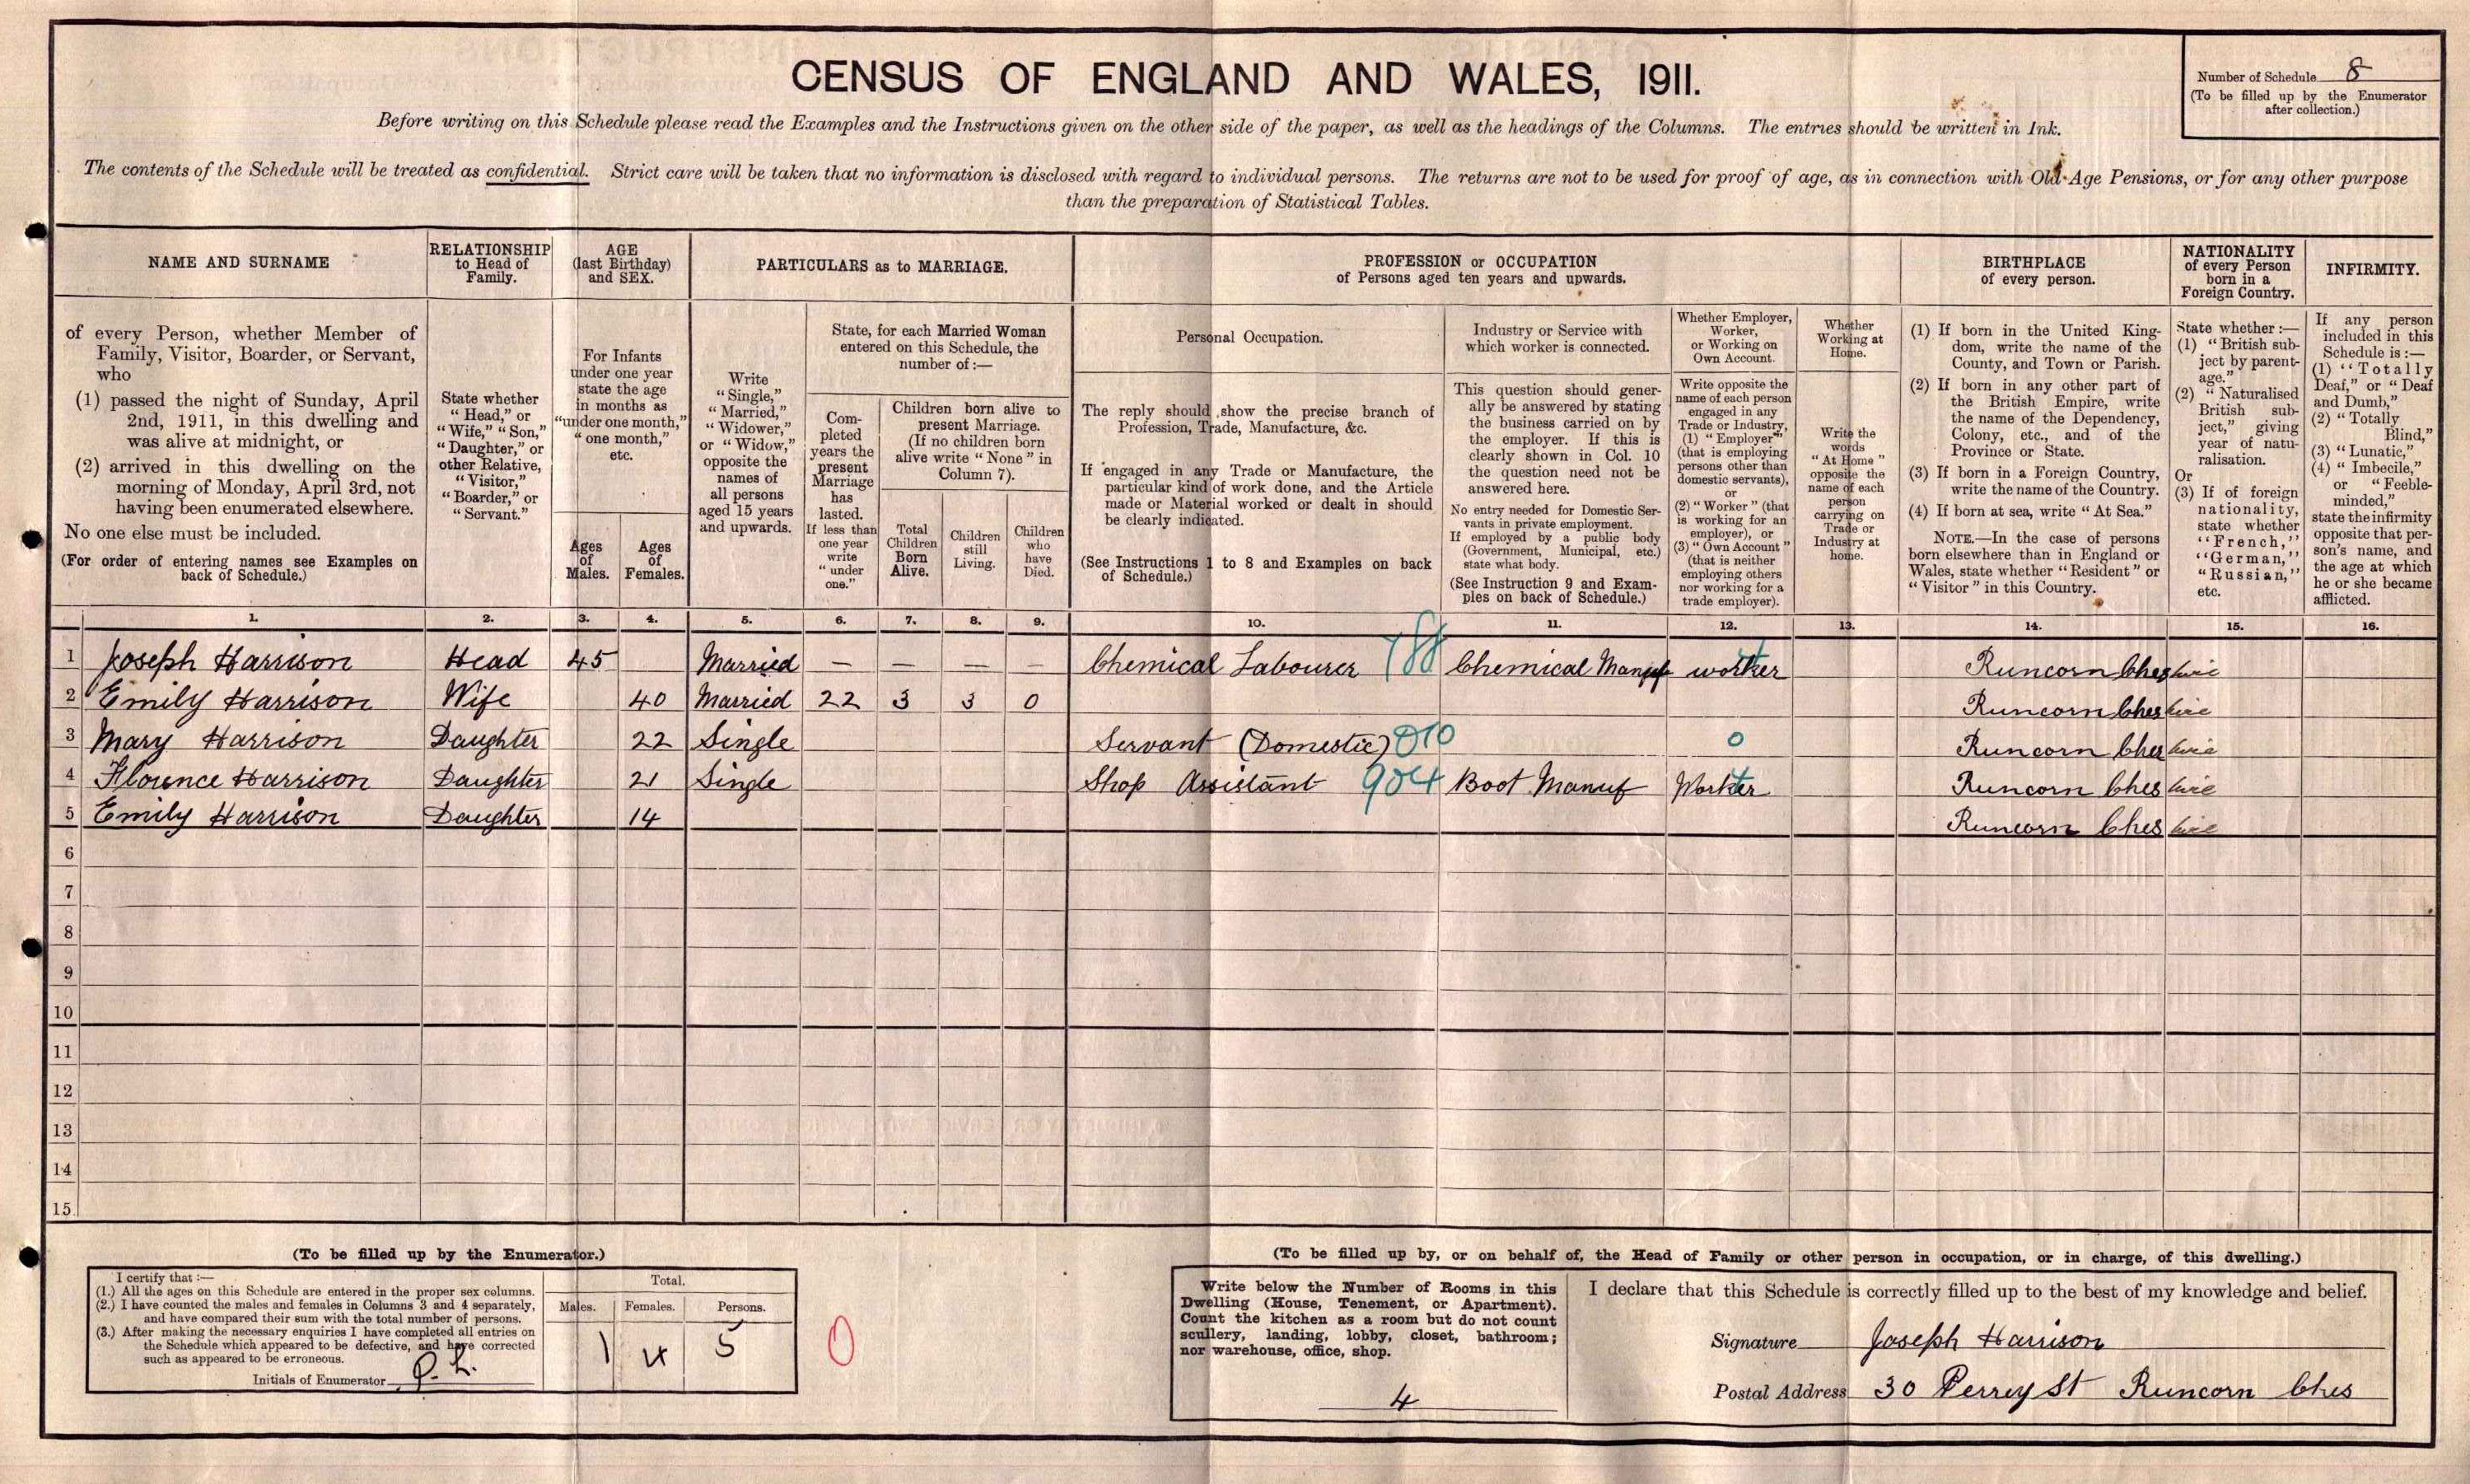 CENSUS OF ENGLAND AND WALES, 1911.
Number of Schedule 8
(To be filled up by the Enumerator
after collection.)
Before writing on this Schedule please read the Examples and the Instructions given on the other side of the paper, as well as the headings of the Columns. The entries should be written in Ink.
The contents of the Schedule will be treated as confidential. Strict care will be taken that no information is disclosed with regard to individual persons. The returns are not to be used for proof of age, as in connection with Old Age Pensions, or for any other purpose
than the preparation of Statistical Tables.
NAME AND SURNAME
of every Person, whether Member of
Family, Visitor, Boarder, or Servant,
who
(1) passed the night of Sunday, April
2nd, 1911, in this dwelling and
was alive at midnight, or
(2) arrived in this dwelling on the
morning of Monday, April 3rd, not
having been enumerated elsewhere.
No one else must be included.
(For order of entering names see Examples on
back of Schedule.)
RELATIONSHIP
to Head of
Family.
State whether
"Head," or
"Wife," "Son,"
"Daughter," or
other Relative,
"Visitor,"
"Boarder," or
"Servant."
AGE
(last Birthday)
and SEX.
For Infants
under one year
state the age
in months as
"under one month,"
"one month,"
etc.
Ages
of
Males.
Ages
of
Females.
PARTICULARS as to MARRIAGE.
Write
"Single,"
"Married,"
"Widower,"
or "Widow,"
opposite the
names of
all persons
aged 15 years
and upwards.
State, for each Married Woman
entered on this Schedule, the
number of:—
Com-
pleted
years the
present
Marriage
has
lasted.
If less than
one year
write
"under
one."
Children born alive to
present Marriage.
(If no children born
alive write "None" in
Column 7).
Total
Children
Born
Alive.
Children
still
Living.
Children
who
have
Died.
PROFESSION or OCCUPATION
of Persons aged ten years and upwards.
Personal Occupation.
The reply should show the precise branch of
Profession, Trade, Manufacture, &c.
If engaged in any Trade or Manufacture, the
particular kind of work done, and the Article
made or Material worked or dealt in should
be clearly indicated.
(See Instructions 1 to 8 and Examples on back
of Schedule.)
Industry or Service with
which worker is connected.
This question should gener-
ally be answered by stating
the business carried on by
the employer. If this is
clearly shown in Col. 10
the question need not be
answered here.
No entry needed for Domestic Ser-
vants in private employment.
If employed by a public body
(Government, Municipal, etc.)
state what body.
(See Instruction 9 and Exam-
ples on back of Schedule.)
Whether Employer,
Worker,
or Working on
Own Account.
Write opposite the
name of each person
engaged in any
Trade or Industry,
(1) "Employer"
(that is employing
persons other than
domestic servants),
or
(2) "Worker" (that
is working for an
employer), or
(3) "Own Account"
(that is neither
employing others
nor working for a
trade employer).
Whether
Working at
Home.
Write the
words
"At Home"
opposite the
name of each
person
carrying on
Trade or
Industry at
home.
BIRTHPLACE
of every person.
(1) If born in the United King-
dom, write the name of the
County, and Town or Parish.
(2) If born in any other part of
the British Empire, write
the name of the Dependency,
Colony, etc., and of the
Province or State.
(3) If born in a Foreign Country,
write the name of the Country.
(4) If born at sea, write "At Sea."
NOTE.—In the case of persons
born elsewhere than in England or
Wales, state whether "Resident" or
"Visitor" in this Country.
NATIONALITY
of every Person
born in a
Foreign Country.
State whether:—
(1) "British sub-
ject by parent-
age."
(2) "Naturalised
British sub-
ject," giving
year of natu-
ralisation.
Or
(3) If of foreign
nationality,
state whether
"French,"
"German,"
"Russian,"
etc.
INFIRMITY.
If any person
included in this
Schedule is:—
(1) "Totally
Deaf," or "Deaf
and Dumb,"
(2) "Totally
Blind,"
(3) "Lunatic,"
(4) "Imbecile,"
or "Feeble-
minded,"
state the infirmity
opposite that per-
son's name, and
the age at which
he or she became
afflicted.
1. 2. 3. 4. 5. 6. 7. 8. 9. 10. 11. 12. 13. 14. 15. 16.
1 Joseph Harrison Head 45 Married — — — — Chemical Labourer 188 Chemical Manuf worker Runcorn Cheshire
2 Emily Harrison Wife 40 Married 22 3 3 0 Runcorn Cheshire
3 Mary Harrison Daughter 22 Single Servant (Domestic) 010 0 Runcorn Cheshire
4 Florence Harrison Daughter 21 Single Shop Assistant 904 Boot Manuf Worker Runcorn Cheshire
5 Emily Harrison Daughter 14 Runcorn Cheshire
6
7
8
9
10
11
12
13
14
15
(To be filled up by the Enumerator.)
I certify that:—
(1.) All the ages on this Schedule are entered in the proper sex columns.
(2.) I have counted the males and females in Columns 3 and 4 separately,
and have compared their sum with the total number of persons.
(3.) After making the necessary enquiries I have completed all entries on
the Schedule which appeared to be defective, and have corrected
such as appeared to be erroneous.
Initials of Enumerator
Total.
Males. Females. Persons.
1 4 5
0
(To be filled up by, or on behalf of, the Head of Family or other person in occupation, or in charge, of this dwelling.)
Write below the Number of Rooms in this
Dwelling (House, Tenement, or Apartment).
Count the kitchen as a room but do not count
scullery, landing, lobby, closet, bathroom;
nor warehouse, office, shop.
4
I declare that this Schedule is correctly filled up to the best of my knowledge and belief.
Signature Joseph Harrison
Postal Address 30 Perrey St Runcorn Ches